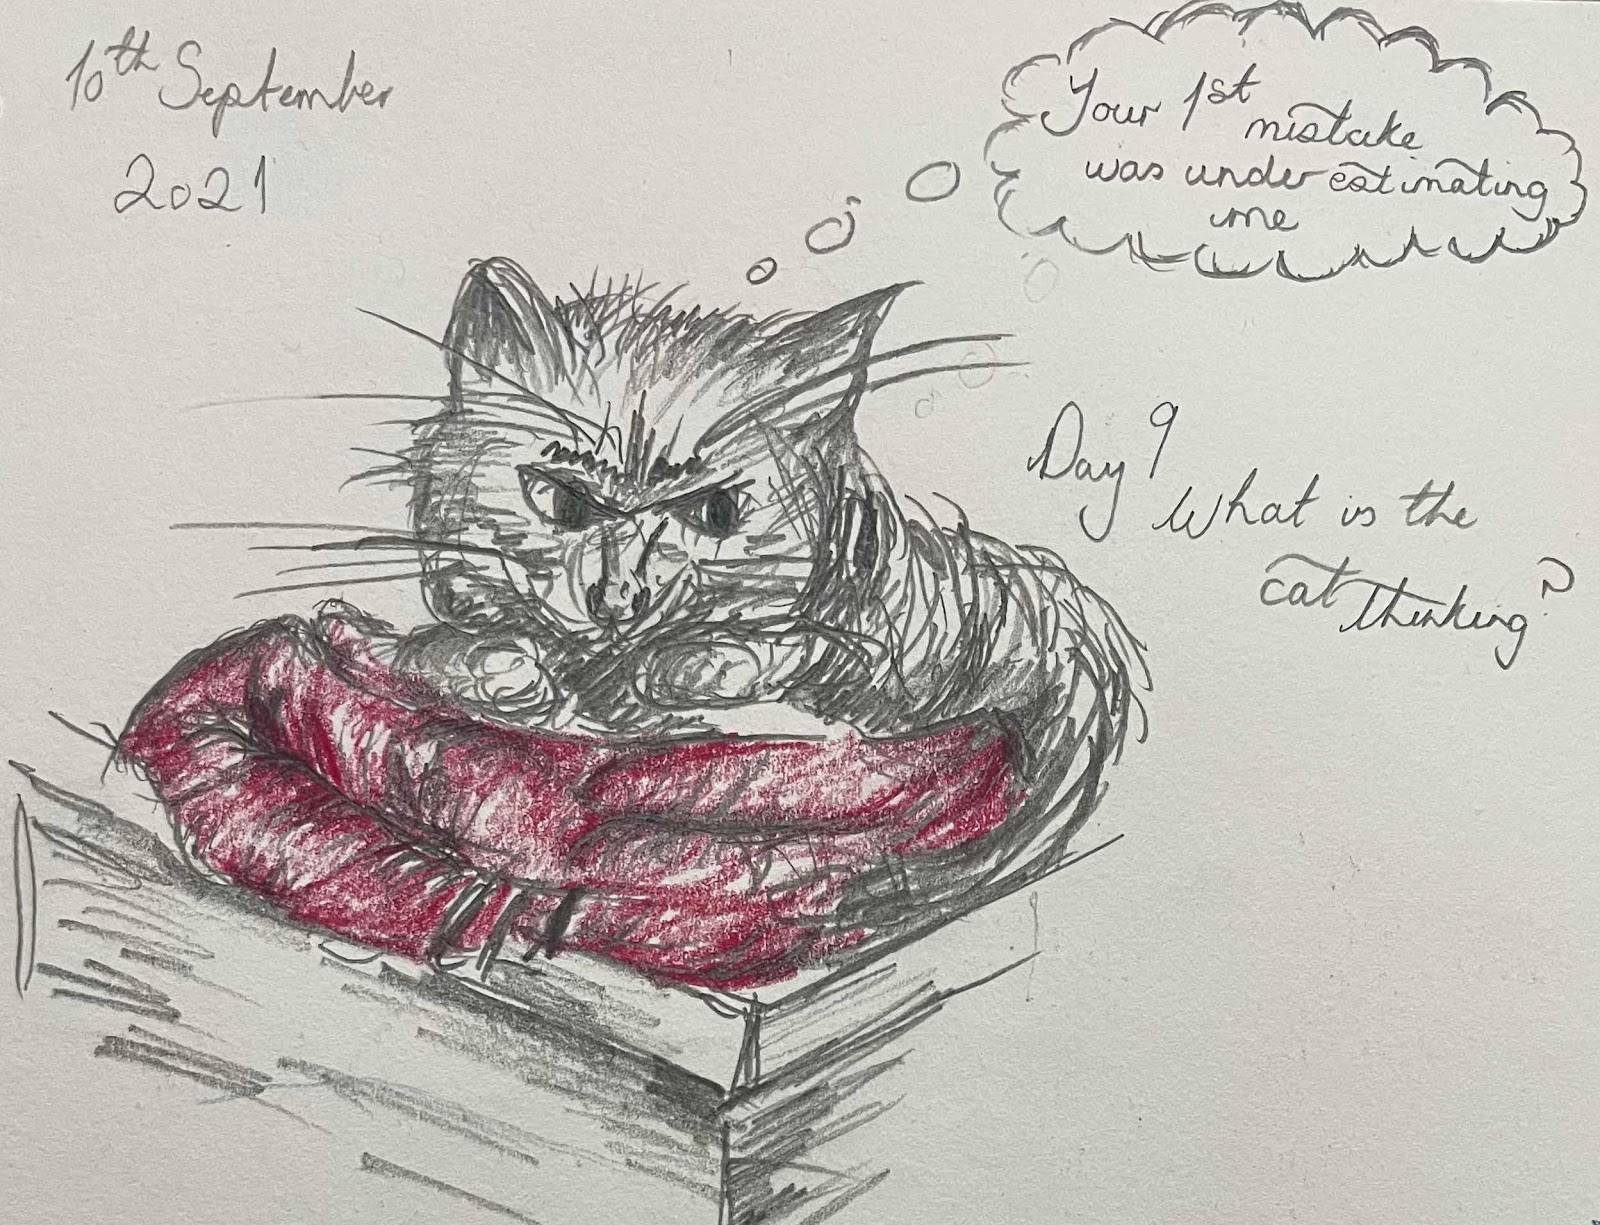 10th September
2021
Your 1st mistake
was underestimating
me
Day 9
What is the
cat thinking?